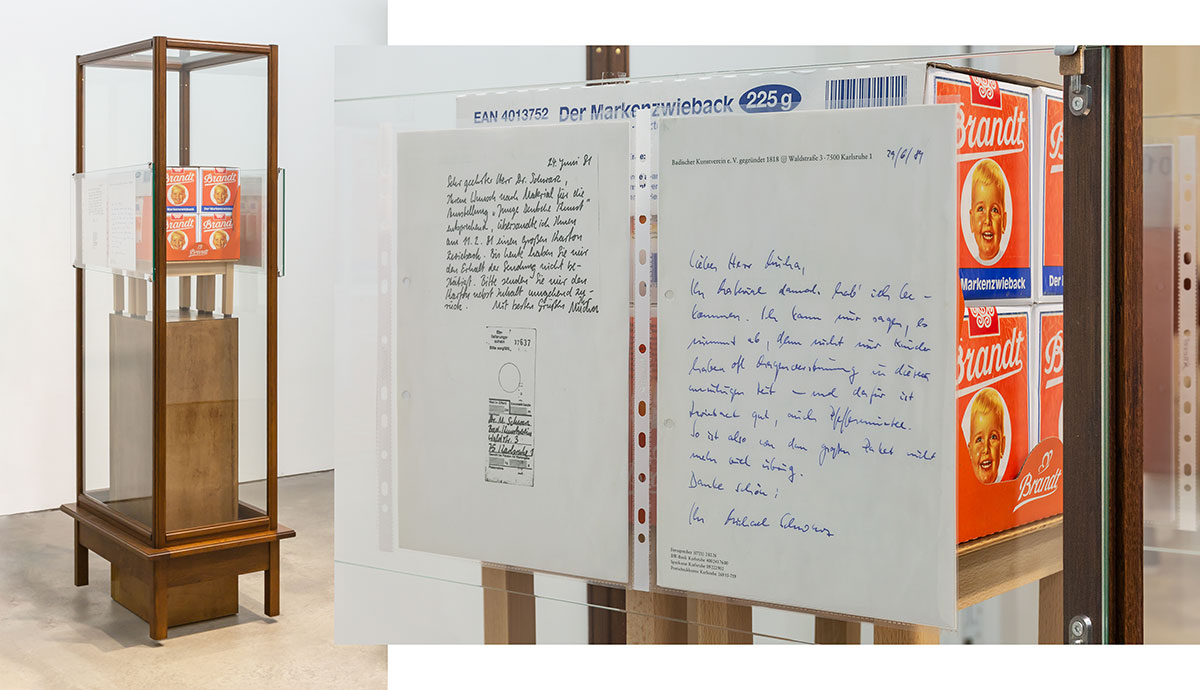 EAN 4013752 Der Markenzwieback 225 g
24. Juni 81
Sehr geehrter Herr Dr. Schwarz,
Ihrem Wunsch nach Material für die
Ausstellung „Junge Deutsche Kunst"
entsprechend, übersandte ich Ihnen
am 11. 2. 81 einen großen Karton
Zwieback. Bis heute haben Sie mir
den Erhalt der Sendung nicht be-
stätigt. Bitte senden Sie mir den
Karton nebst Inhalt umgehend zu-
rück. Mit besten Grüßen
637
Dr. M. Schwarz
Bad. Kunstverein
Waldstr. 3
75 Karlsruhe 1
Badischer Kunstverein e. V. gegründet 1818 Waldstraße 3 · 7500 Karlsruhe 1
29/6/81
Lieber Herr
Ihr damals hab' ich be-
kommen. Ich kann nur sagen, es
nimmt ab, denn nicht nur Kinder
haben oft Magenverstimmung in dieser
unruhigen Zeit – und dafür ist
Zwieback gut, auch Pfefferminztee.
So ist also von dem großen Paket nicht
mehr viel übrig.
Danke schön!
Ihr Michael Schwarz
Fernsprecher (0721)
BW Bank Karlsruhe
Sparkasse Karlsruhe
Postscheckkonto Karlsruhe
Brandt
Markenzwieback
Der M
Brandt
Brandt
Brandt
Brandt
Markenzwieback
Brandt
Brandt